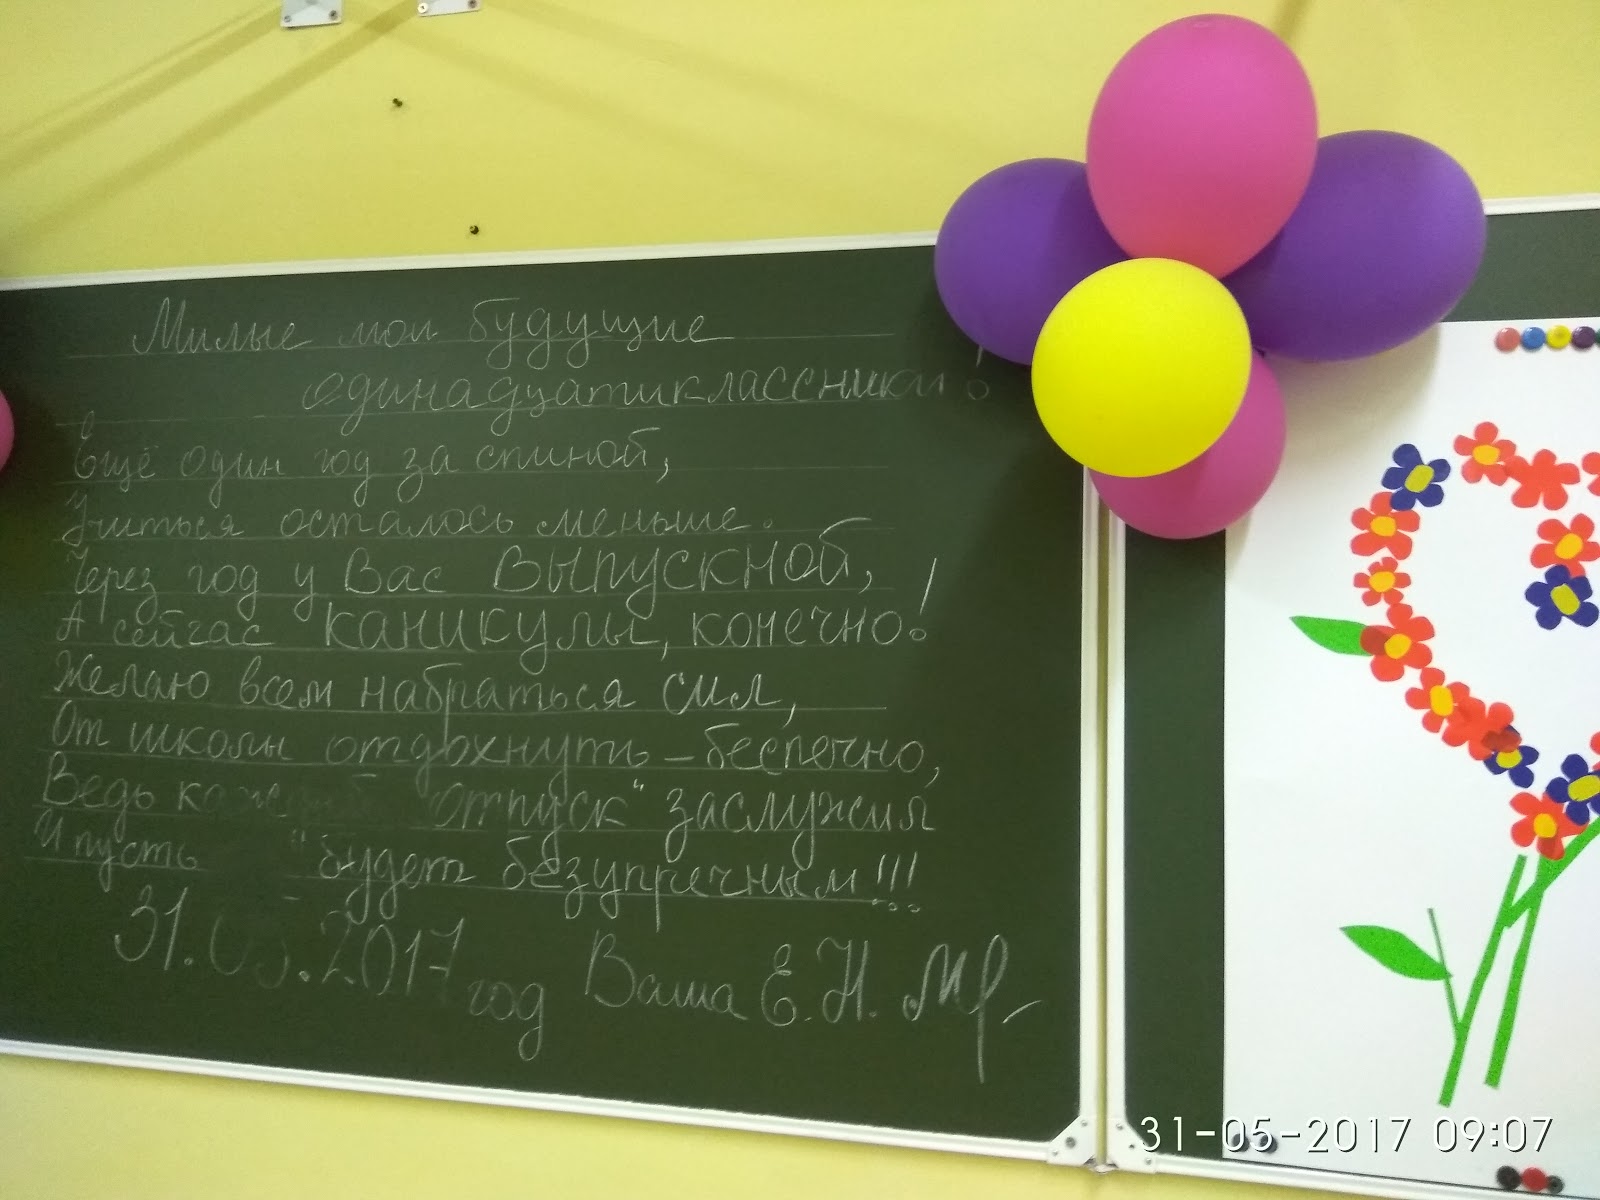 Милые мои будущие
одинадцатиклассники!
Ещё один год за спиной,
Учиться осталось меньше.
Через год у Вас выпускной,
А сейчас каникулы, конечно!
Желаю всем набраться сил,
От школы отдохнуть - беспечно,
Ведь каждый "отпуск" заслужил
И пусть "будет безупречным!!!
31.05.2017 год Ваша Е.Н.
31-05-2017 09:07